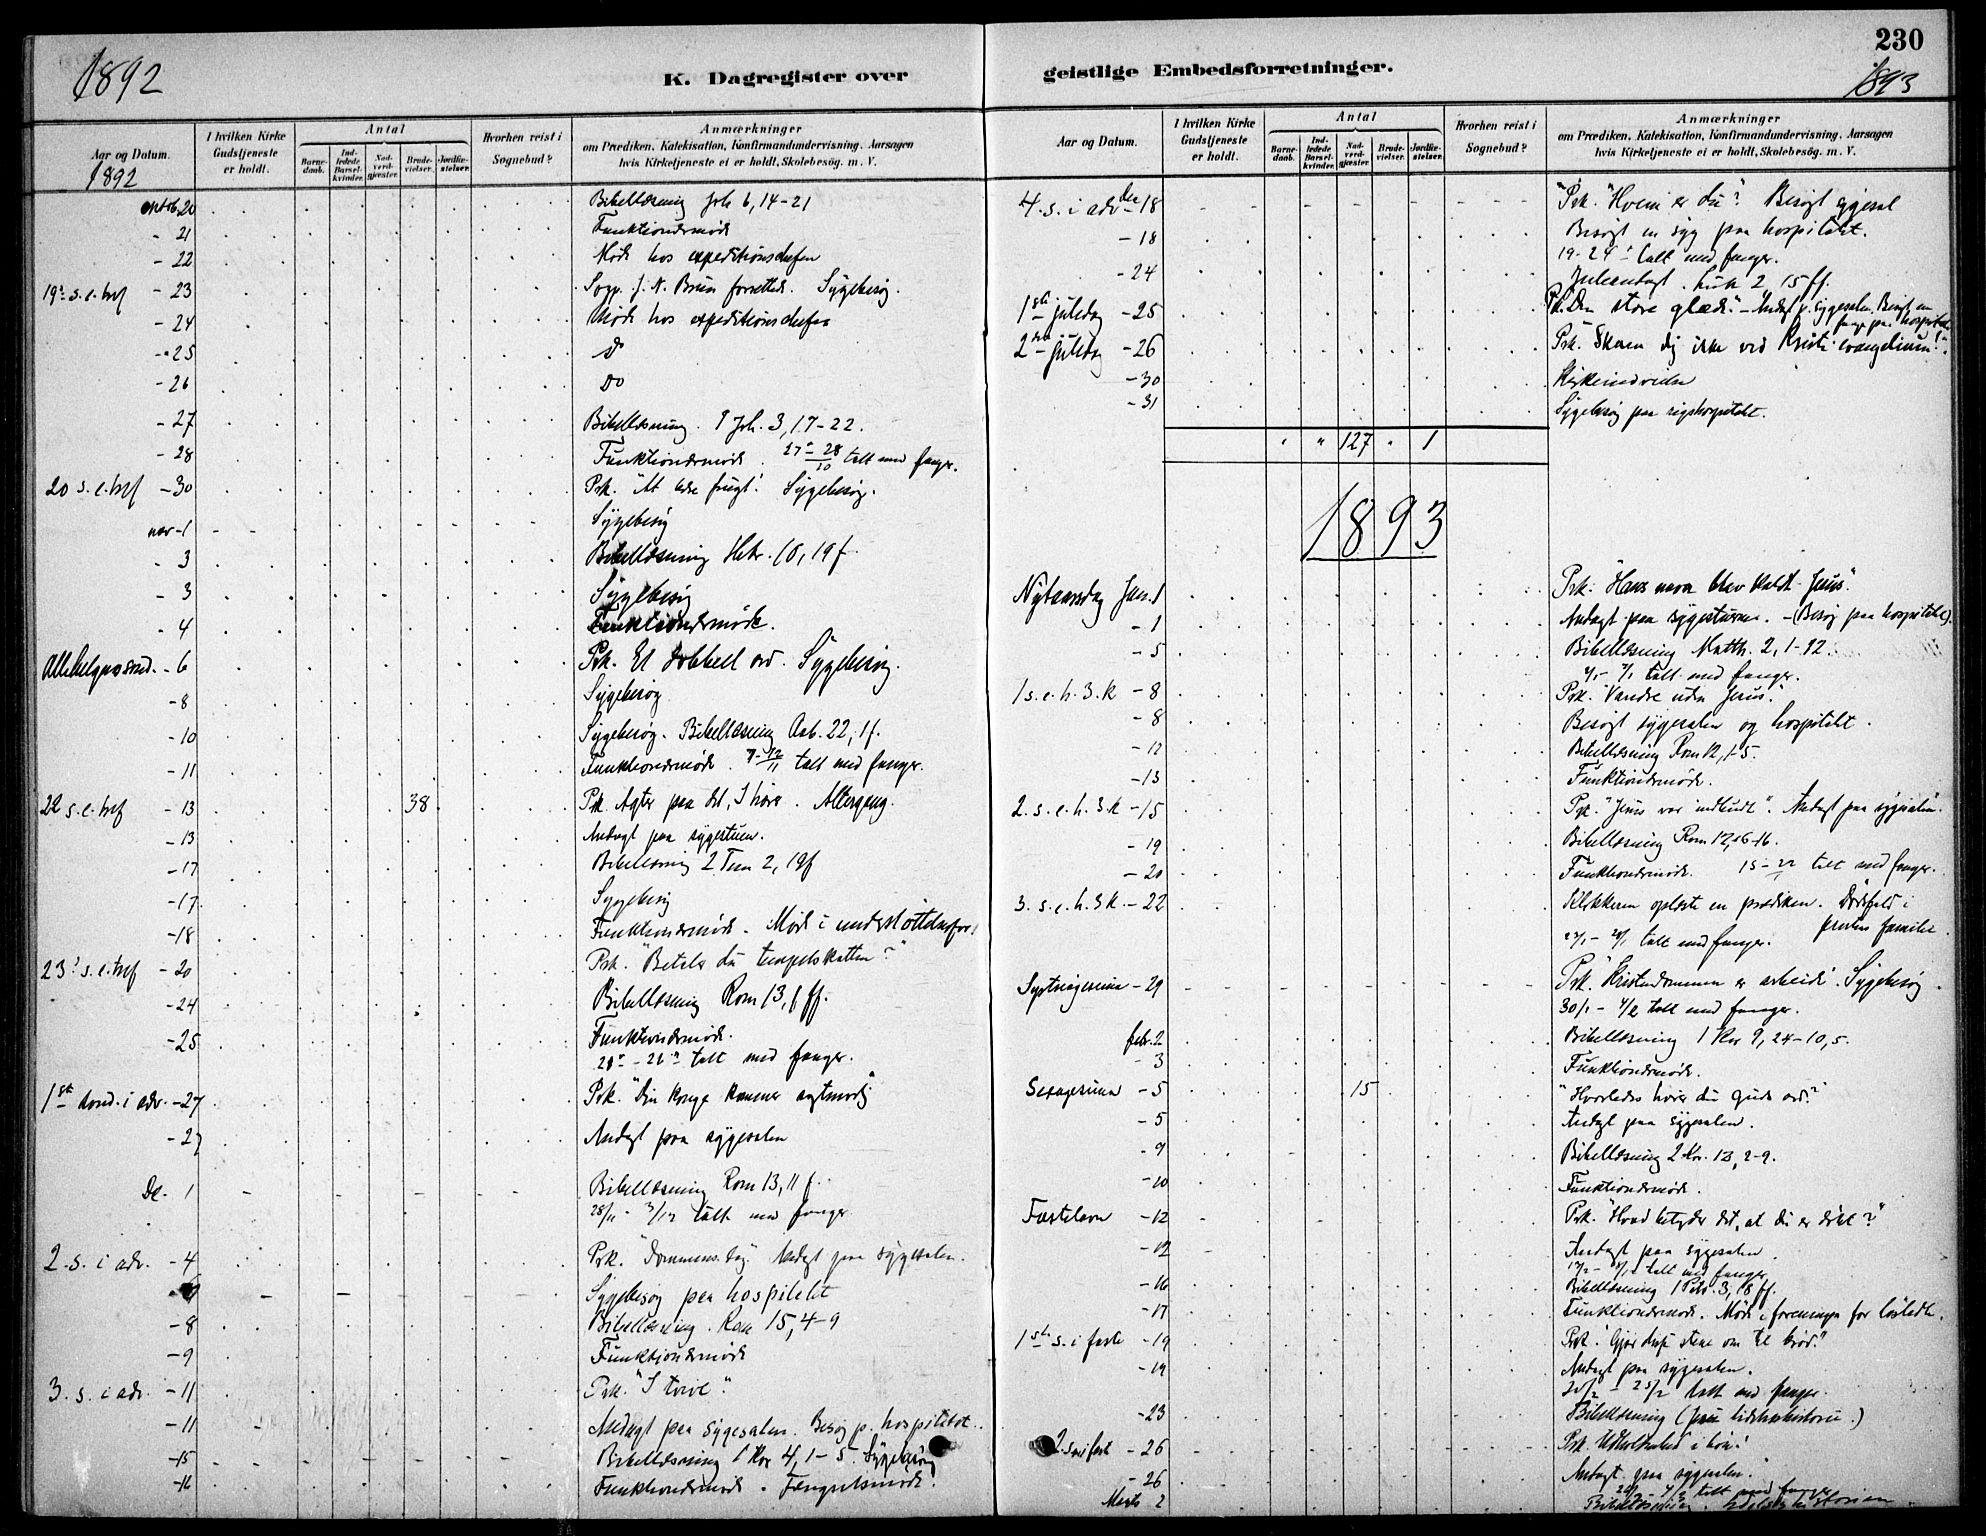 230
1892
K. Dagregister over
geistlige Embedsforretninger.
1893
Aar og Datum.
1892
I hvilken Kirke Gudstjeneste er holdt.
Antal
Barnedaab.
Indledede Barselkvinder.
Nadverdgjæster.
Brudevielser.
Jordfæstelser.
Hvorhen reist i Sognebud?
Anmærkninger
om Prædiken, Katekisation, Konfirmandundervisning. Aarsagen
hvis Kirketjeneste ei er holdt, Skolebesøg. m. V.
oktob. 20 Bibellæsning Joh 6, 14-21
- 21 Funktionærmøde
- 22 Møde hos expeditionschefen
19de s.e.tref - 23 Sogp. J. N. Brun forrettede. Sygebesøg.
- 24 Møde hos expeditionschefen
- 25 do
- 26 Do
- 27 Bibellæsning. 1 Joh. 3, 17-22.
- 28 Funktionærmøde. talt med fanger.
20 s.e.tref - 30 Prk. "At bære frugt". Sygebesøg.
nov - 1 Sygebesøg
- 3 Bibellæsning Hebr. 10, 19 f.
- 3 Sygebesøg
- 4 Funktionærmøde.
Allehelgenssønd. - 6 Prk. Et dobbelt ord. Sygebesøg.
- 8 Sygebesøg
- 10 Sygebesøg. Bibellæsning Aab. 22, 1f.
- 11 Funktionærmøde. talt med fanger.
22 s.e.tref - 13 38 Prk Agter paa det, I høre. Altergang.
- 13 Andagt paa sygestuen.
- 17 Bibellæsning 2 Tim 2, 19f
- 17 Sygebesøg
- 18 Funktionærmøde. Møde i understøttelsesfor.
23de s.e.tref - 20 Prk. "Betaler du tempelskatten?"
- 24 Bibellæsning Rom 13, 1 ff.
- 25 Funktionærmøde.
talt med fanger.
1ste sønd. i adv. - 27 Prk. "Din konge kommer sagtmodig"
- 27 Andagt paa sygesalen
De. 1 Bibellæsning Rom 13, 11 f.
28/11 - 3/12 talt med fanger
2. s. i adv. - 4 Prk. "Dommens dag. Andagt paa sygesalen.
Sygebesøg paa hospitalet
- 8 Bibellæsning. Rom 15, 4-9
- 9 Funktionærmøde
3. s. i adv. - 11 Prk. "I tvivl".
- 11 Andagt paa sygesalen. Besøg p. hospitalet.
- 15 Bibellæsning 1 Kor 4, 1-5. Sygebesøg
- 16 Funktionærmøde. Fængselsmøde.
Aar og Datum.
I hvilken Kirke Gudstjeneste er holdt.
Antal
Barnedaab.
Indledede Barselkvinder.
Nadverdgjæster.
Brudevielser.
Jordfæstelser.
Hvorhen reist i Sognebud?
Anmærkninger
om Prædiken, Katekisation, Konfirmandundervisning. Aarsagen
hvis Kirketjeneste ei er holdt, Skolebesøg. m. V.
4. s. i adv Dec - 18 Prk. "Hvem er du"? Besøgt sygesal
- 18 Besøgt en syg paa hospitalet.
19-24 talt med fanger.
- 24 Juleandagt. Luk 2 15 ff.
1ste juledag - 25 Pk. Den store glæde. - Andagt p. sygesalen. Besøgt en fange paa hospitalet
2den juledag - 26 Prk. "Skam dig ikke ved Kristi evangelium!"
- 30 Kirkeindvielse
- 31 Sygebesøg paa rigshospitalet.
" " 127 " 1
1893
Nytaarsdag Jan. 1 Prk. "Hans navn blev kaldt Jesus".
- 1 Andagt paa sygestuerne. - (Besøg paa hospitalet).
- 5 Bibellæsning Matth. 2, 1-12.
talt med fanger.
1 s.e.h.3.k - 8 Prk. "Vandre uden Jesus".
- 8 Besøgt sygesalen og hospitalet.
- 12 Bibellæsning Rom 12, 1-5.
- 13 Funktionærmøde.
2. s.e.h.3k - 15 Prk. "Jesus var indbudt". Andagt paa sygesalen.
- 19 Bibellæsning Rom 12, 6-16.
- 20 Funktionærmøde. talt med fanger.
3. s.e.h.3k. - 22 Klokkeren oplæste en prædiken. Dødsfald i
prestens familie.
talt med fanger.
Septuagesima - 29 Prk. "Kristendommen er arbeide". Sygebesøg.
30/1 - 4/2 talt med fanger.
febr. 2 Bibellæsning 1 Kor 9, 24-10, 5.
- 3 Funktionærmøde.
Sexagesima - 5 15 "Hvorledes hører du Guds ord?"
- 5 Andagt paa sygesalen.
- 9 Bibellæsning 2 Kor. 12, 2-9.
- 10 Funktionærmøde.
Fastelavn - 12 Prk. "Hvad betyder det, at du er døbt?"
- 12 Andagt paa sygesalen.
talt med fanger
- 16 Bibellæsning 1 Petr. 3, 18 ff.
- 17 Funktionærmøde. Møde i foreningen for løsladte.
1ste s. i faste - 19 Prk. "Gjør disse stene om til brød."
- 19 Andagt paa sygesalen.
20/2 - 25/2 talt med fanger.
- 23 Bibellæsning (Jesu lidelseshistorie.)
2 s. i faste - 26 Prk. Udholdenhed i bøn!
- 26 Andagt paa sygesalen.
talt med fanger
Marts 2 Bibellæsning. Lidelseshistorien.